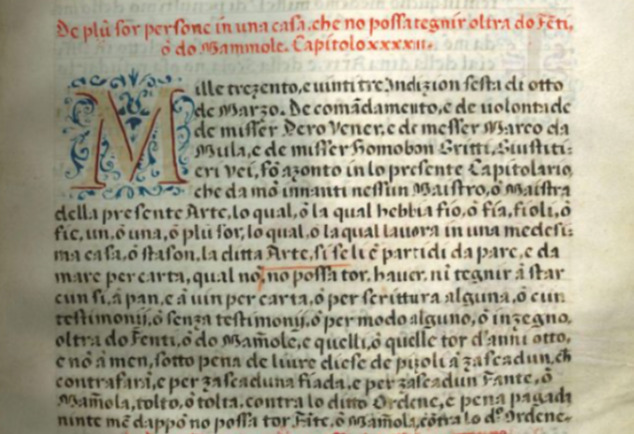 De plù sor persone in una casa, che no possa tegnir oltra do Fēti,
ò do Mammole. Capitolo xxxxii.
Mille trezento, e uinti tre, Indizion sesta di otto
de Marzo. De comādamento, e de uolontade
de misser Pero Vener, e de messer Marco da
Mula, e de misser Homobon Gritti, Giustiti:
eri Vei, fò azonto in lo presente Capitolario,
che da mò innanti nessun Maistro, ò Maistra
della presente Arte, lo qual, ò la qual hebbia fio, ò fia, fioli, ò
fie, un, ò una, ò plù sor, lo qual, o la qual laura in una medesi:
ma casa, ò stason, la ditta Arte, si se li è partidi da pare, e da
mare per carta, qual nò, no possa tor, hauer, nì tegnir à star
cun si, à pan, e à uin per carta, ò per scrittura alguna, ò cun
testimonij, ò senza testimonij, ò per modo alguno, ò inzegno,
oltra do Fenti, ò do Mam̄ole, e quelli, ò quelle tor d'anni otto,
e nò à men, sotto pena de liure diese de pizoli à zascadun, ch̄
contrafarà, e per zascaduna fiada, e per zascadun Fante, ò
Mam̄ola, tolto, ò tolta, contra lo ditto Ordene, e pena pagada
ninte mē dappò no possa tor Fāte, ò Mam̄ola, cōtra lo d.º Ordene.